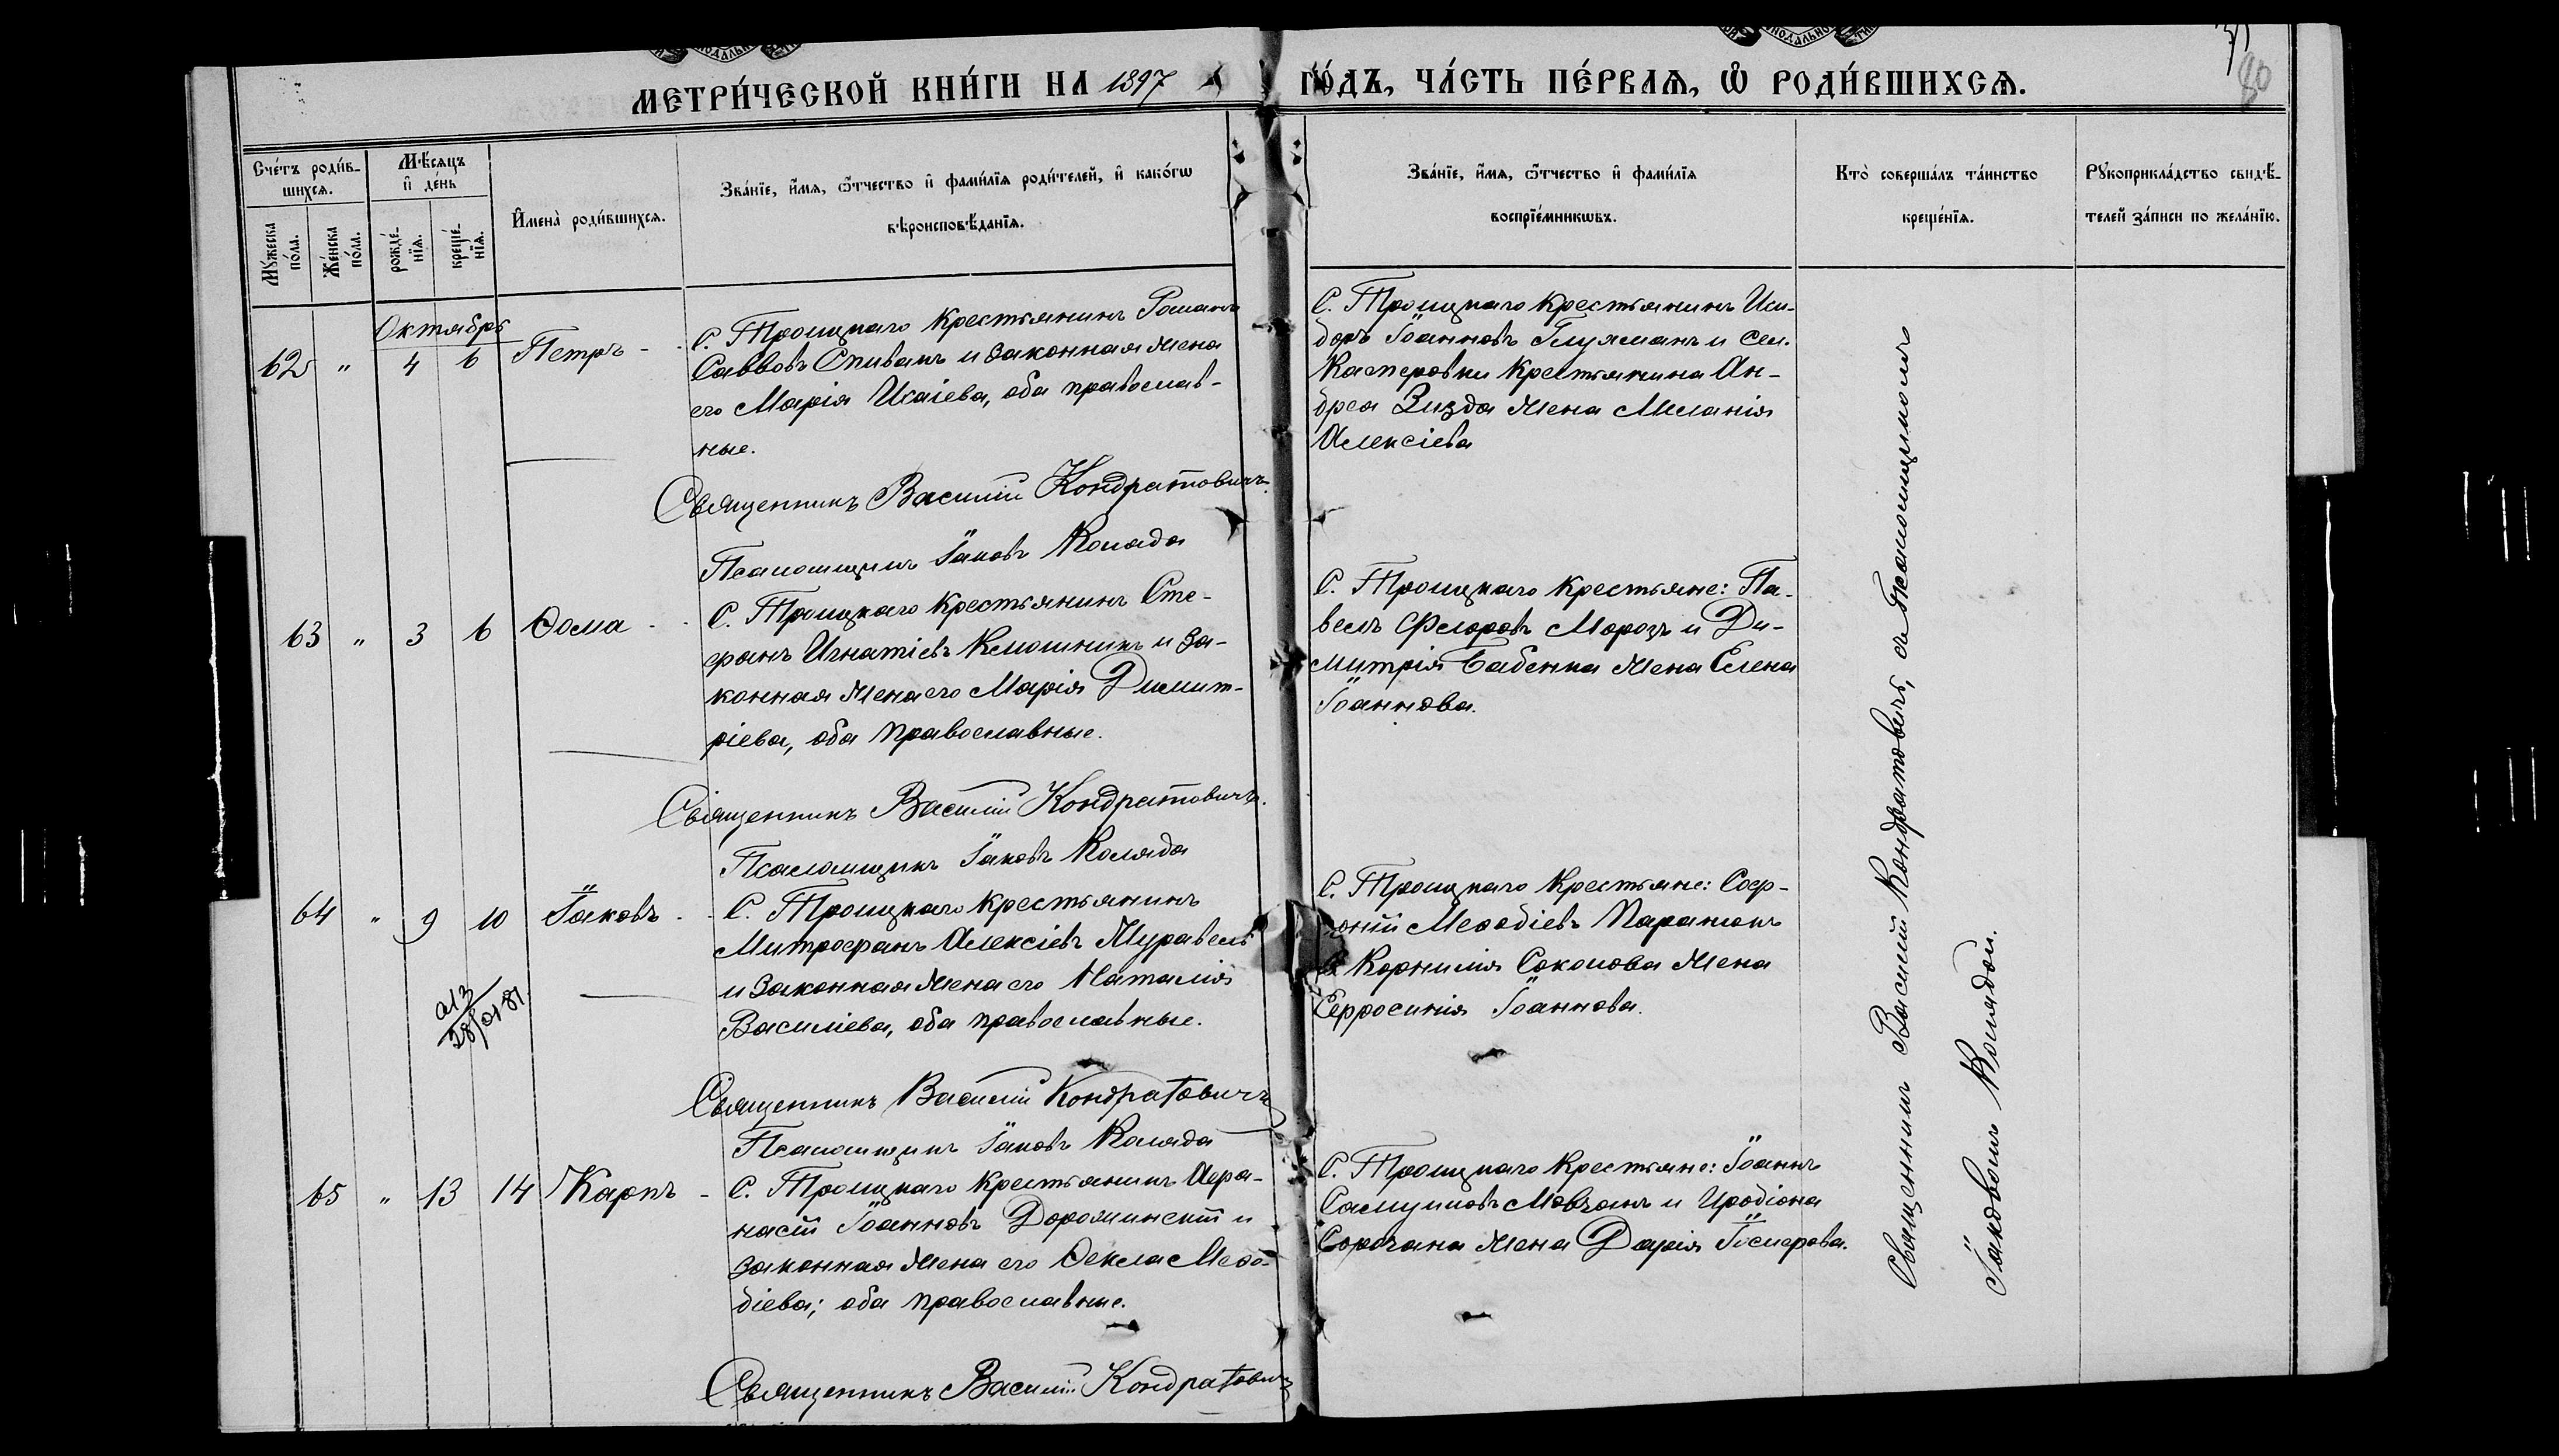 МЕТРИ́ЧЕСКОЙ КНИ́ГИ НА 1897 ГО́ДЪ, ЧА́СТЬ ПЕ́РВАЯ, Ѡ РОДИ́ВШИХСЯ.
80
Сче́тъ роди́в-
шихся.
Му́жеска по́ла.
Же́нска по́ла.
Мѣ́сяцъ
и҆ де́нь
рожде́-
нїя.
креще́-
нїя.
И҆мена̀ роди́вшихся.
Зва́нїе, и҆́мя, ѻ҆́тчество и҆ фами́лїя роди́телей, и҆ како́гѡ
вѣроисповѣ́данїя.
Зва́нїе, и҆́мя, ѻ҆́тчество и҆ фами́лїя
воспрїе́мникѡвъ.
Кто̀ соверша́лъ та́инство
креще́нїя.
Рꙋкоприкла́дство свидѣ́-
телей за́писи по жела́нїю.
Октябрь
62 " 4 6 Петръ
С. Троицкаго крестьянинъ Романъ
Савовъ Спивакъ и законная жена
его Марія Исаіева, оба православ-
ные.
Священникъ Василій Кондратовичъ.
Псаломщикъ Іаковъ Коляда
С. Троицкаго крестьянинъ Иси-
доръ Іоанновъ Глузманъ и сел.
Касперовки крестьянина Ан-
дрея Зизда жена Меланія
Алексіева
63 " 3 6 Ѳома
С. Троицкаго крестьянинъ Сте-
фанъ Игнатіевъ Клюшникъ и за-
конная жена его Марія Димит-
ріева, оба православные.
Священникъ Василій Кондратовичъ.
Псаломщикъ Іаковъ Коляда
С. Троицкаго крестьяне: Па-
велъ Флоровъ Морозъ и Ди-
митрія Бабенка жена Елена
Іоаннова.
64 " 9 10 Іаковъ
С. Троицкаго крестьянинъ
Митрофанъ Алексіевъ Журавель
и законная жена его Наталія
Василіева, оба православные.
Священникъ Василій Кондратовичъ
Псаломщикъ Іаковъ Коляда
С. Троицкаго крестьяне: Соф-
роній Меѳодіевъ Паранюкъ
и Корнилія Соколова жена
Евфросинія Іоаннова.
65 " 13 14 Карпъ
С. Троицкаго крестьянинъ Афа-
насій Іоанновъ Дорожинскій и
законная жена его Ѳекла Меѳо-
діева; оба православные.
Священникъ Василій Кондратовичъ
С. Троицкаго крестьяне: Іоаннъ
Самуиловъ Мовчанъ и Иродіона
Сорочана жена Дарія
Священникъ Василій Кондратовичъ, съ псаломщикомъ
Іаковомъ Колядою.